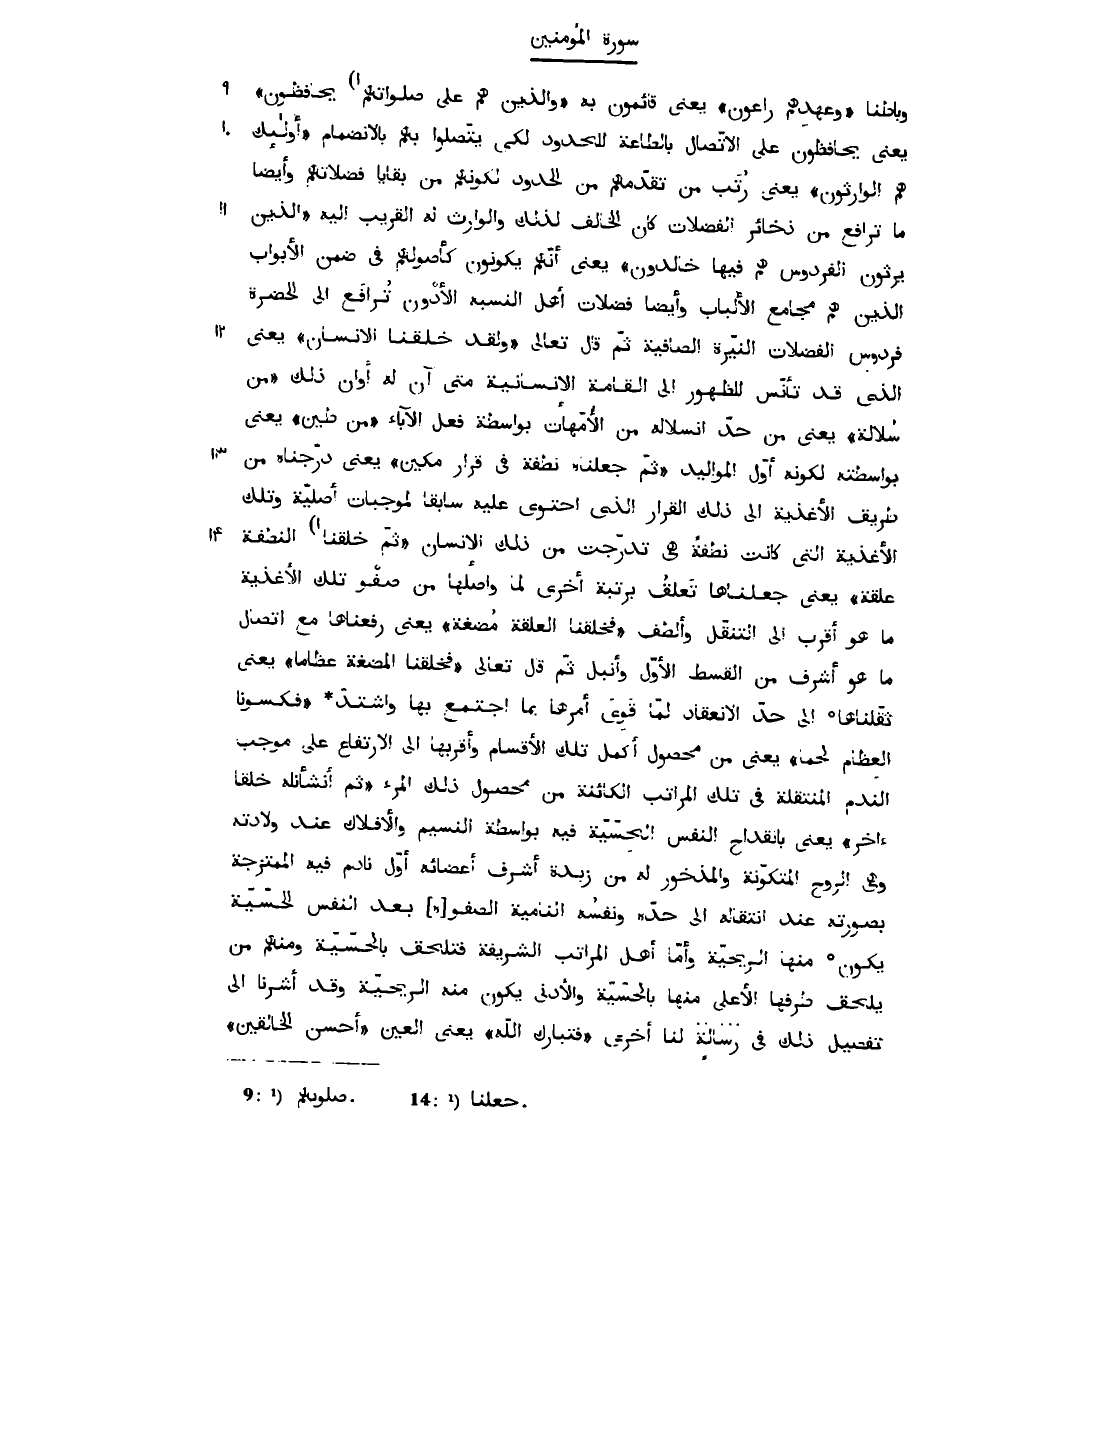 سورة المؤمنين
وباطنا «وعهدهم راعون» يعنى قائمون به «والذين هم على صلواتهم¹) يحافظون» ٩
يعنى يحافظون على الاتّصال بالطاعة للحدود لكى يتّصلوا بهم بالانضمام «أولٰئك ١٠
هم الوارثون» يعنى رُتَب من تقدّمهم من الحدود لكونهم من بقايا فضلاتهم وأيضا
ما ترافع من ذخائر الفضلات كان الخالف لذلك والوارث له القريب اليه «الذين ١١
يرثون الفردوس هم فيها خالدون» يعنى أنّهم يكونون كأصولهم فى ضمن الأبواب
الذين هم مجامع الألباب وأيضا فضلات أهل النسبه الأدْون تُرافَع الى الحضرة
فردوس الفضلات النيّرة الصافية ثمّ قال تعالى «ولقد خلقنا الانسان» يعنى ١٢
الذى قد تأنّس للظهور الى القامة الإنسانية متى آن له أوان ذلك «من
سُلالة» يعنى من حدّ انسلاله من الأُمّهات بواسطة فعل الآباء «من طين» يعنى
بواسطته لكونه أوّل المواليد «ثمّ جعلناه نطفة فى قرار مكين» يعنى درّجناه من ١٣
طريف الأغذية الى ذلك القرار الذى احتوى عليه سابقا لموجبات أصليّة وتلك
الأغذية التى كانت نطفةً هى تدرّجت من ذلك الإنسان «ثمّ خلقنا¹) النطفة ١۴
علقة» يعنى جعلناها تَعلقُ برتبة أخرى لما واصلها من صفْو تلك الأغذية
ما هو أقرب الى التنقّل وألطف «فخلقنا العلقة مُضغة» يعنى رفعناها مع اتصال
ما هو أشرف من القسط الأوّل وأنبل ثمّ قل تعالى «فخلقنا المضغة عظاما» يعنى
ثقّلناها° الى حدّ الانعقاد لمّا قَوِىَ أمرها بما اجتمع بها واشتدّ* «فكسونا
العظام لحما» يعنى من محصول أكمل تلك الأقسام وأقربها الى الارتفاع على موجب
الندم المنتقلة فى تلك المراتب الكائنة من محصول ذلك المرء «ثم أنشأنٰه خلقا
ءاخر» يعنى بانقداح النفس الحسّيّة فيه بواسطة النسيم والأفلاك عند ولادته
وهى الروح المتكوّنة والمذخور له من زبدة أشرف أعضائه أوّل نادم فيه الممتزجة
بصورته عند انتقاله الى حدّه ونفسُه النامية الصفو[ة] بعد النفس الحسّيّة
يكون° منها الريحيّة وأمّا أهل المراتب الشريفة فتلحق بالحسّيّة ومنهم من
يلحق طرفها الأعلى منها بالحسّيّة والأدنى يكون منه الريحيّة وقد أشرنا الى
تفصيل ذلك فى رسالة لنا أخرى «فتبارك اللّه» يعنى العين «أحسن الخالقين»
9: ¹) صلوتهم. 14: ¹) جعلنا.